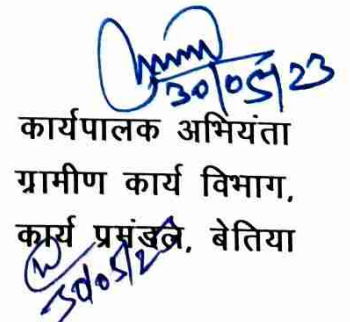 30/05/23
कार्यपालक अभियंता
ग्रामीण कार्य विभाग,
कार्य प्रमंडल, बेतिया
30/05/23